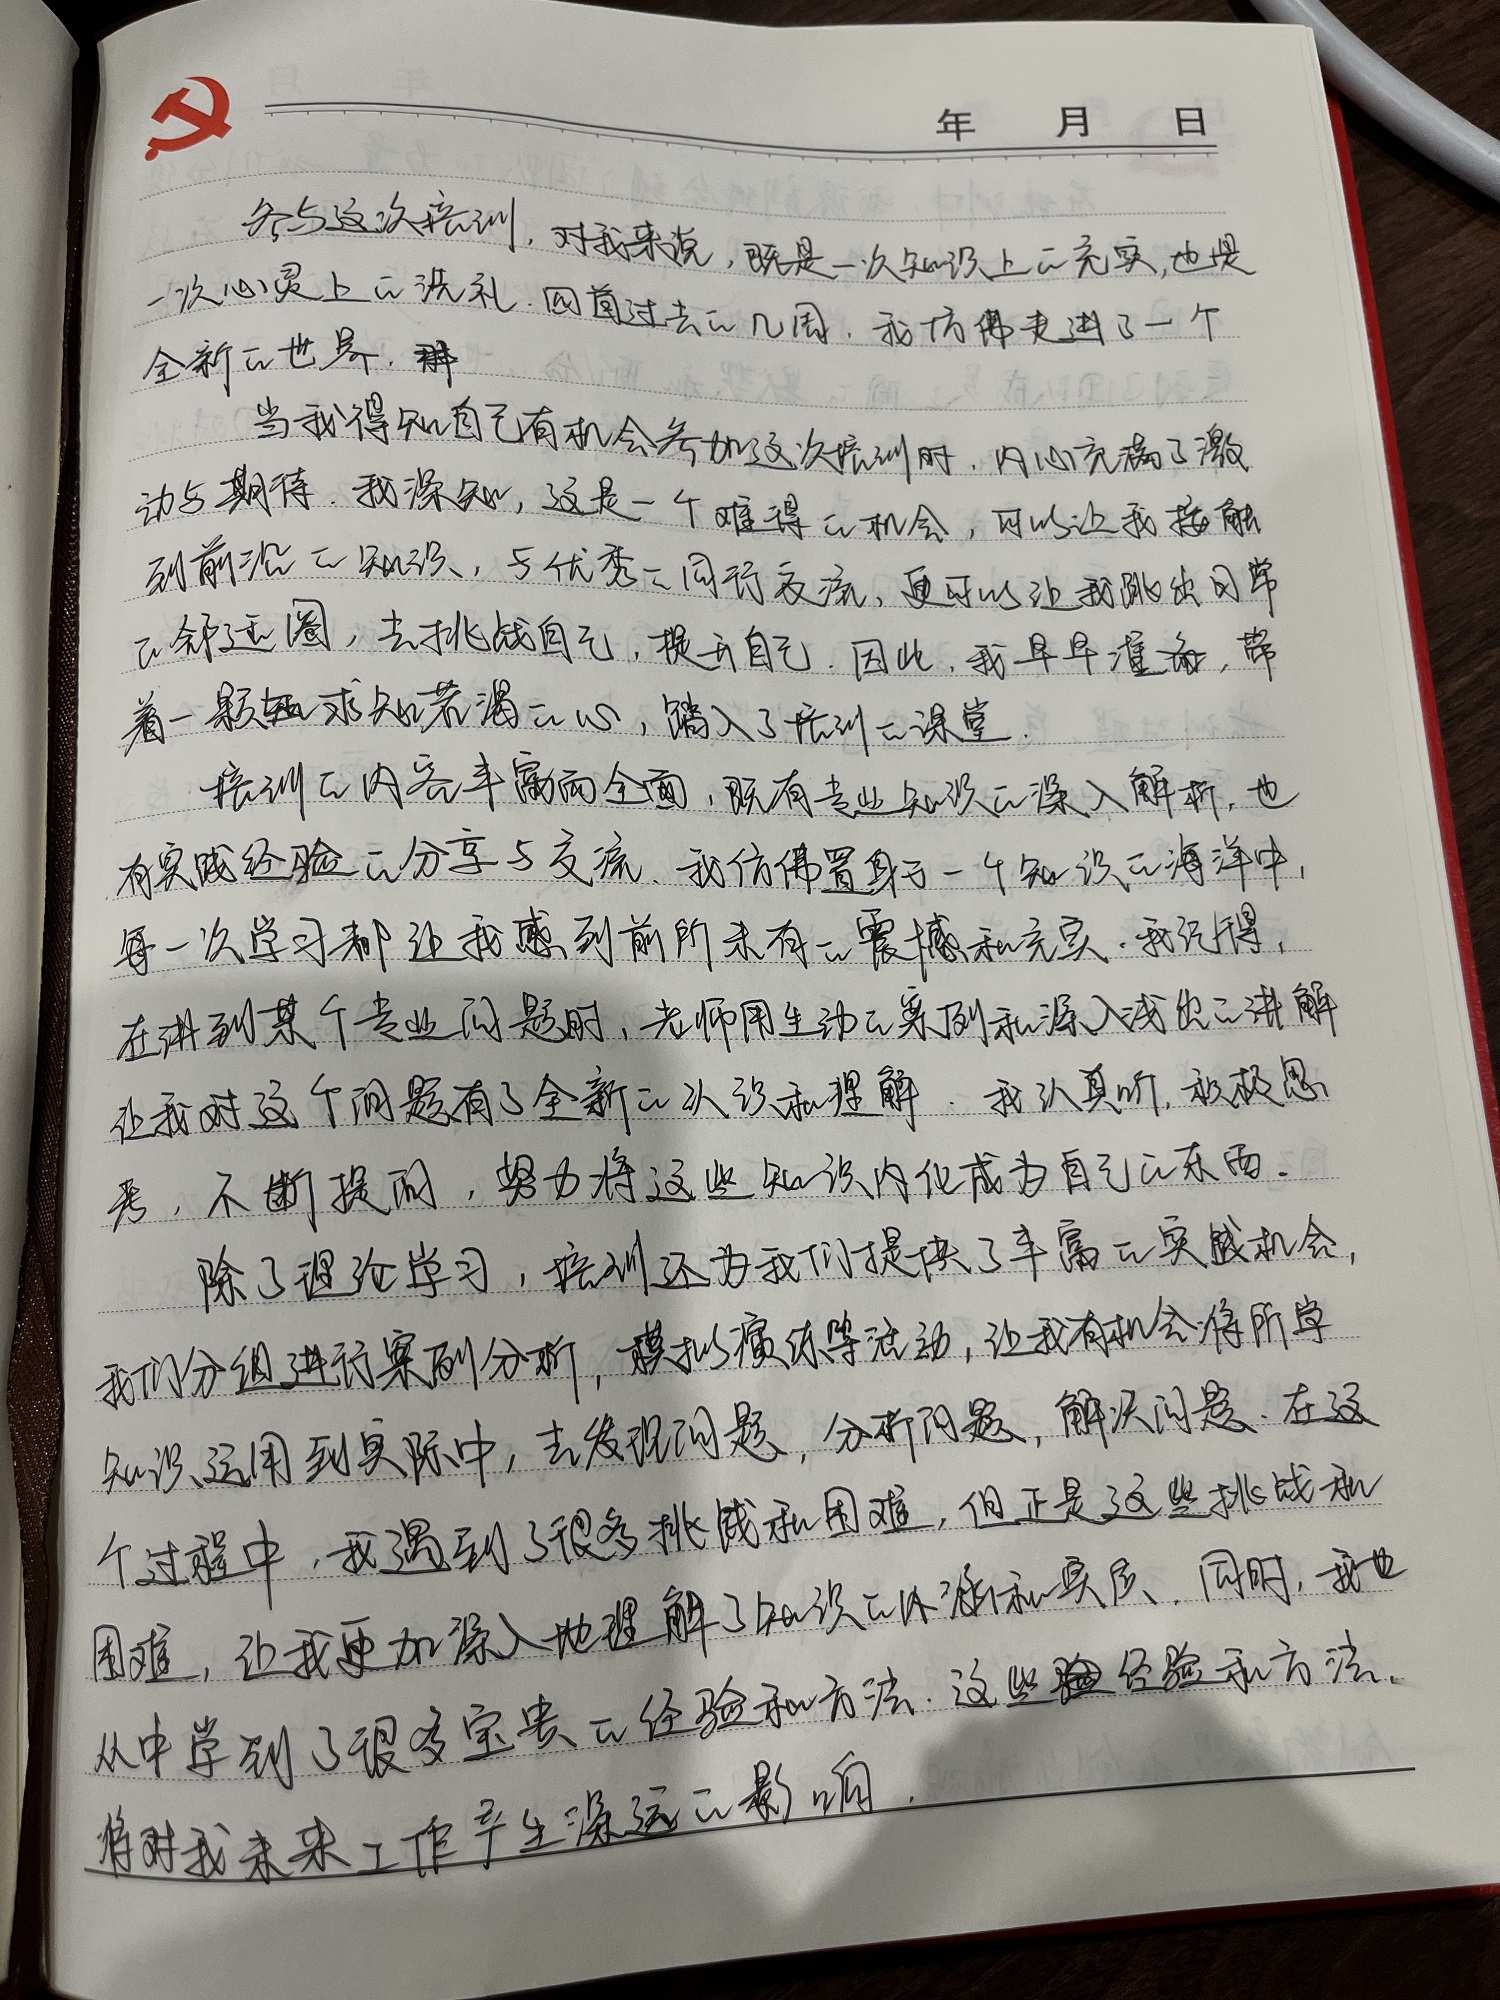 年 月 日
参与这次培训，对我来说，既是一次知识上的充实，也是
一次心灵上的洗礼．回首过去的几周．我仿佛走进了一个
全新的世界．
当我得知自己有机会参加这次培训时．内心充满了激
动与期待．我深知，这是一个难得的机会，可以让我接触
到前沿的知识、，与优秀的同行交流，更可以让我跳出日常
的舒适圈，去挑战自己，提升自己．因此．我早早准备，带
着一颗求知若渴的心，踏入了培训的课堂．
培训的内容丰富而全面，既有专业知识的深入解析，也
有实践经验的分享与交流、我仿佛置身于一个知识的海洋中，
每一次学习都让我感到前所未有的震撼和充实．我记得，
在讲到某个专业问题时，老师用生动的案例和深入浅出的讲解
让我对这个问题有了全新的认识和理解．我认真听，积极思
考，不断提问，努力将这些知识内化成为自己的东西．
除了理论学习，培训还为我们提供了丰富的实践机会，
我们分组进行案例分析，模拟演练等活动，让我有机会将所学
知识运用到实际中，去发现问题，分析问题，解决问题．在这
个过程中，我遇到了很多挑战和困难，但正是这些挑战和
困难，让我更加深入地理解了知识的内涵和实质．同时，我也
从中学到了很多宝贵的经验和方法．这些经验和方法、
将对我未来工作产生深远的影响．